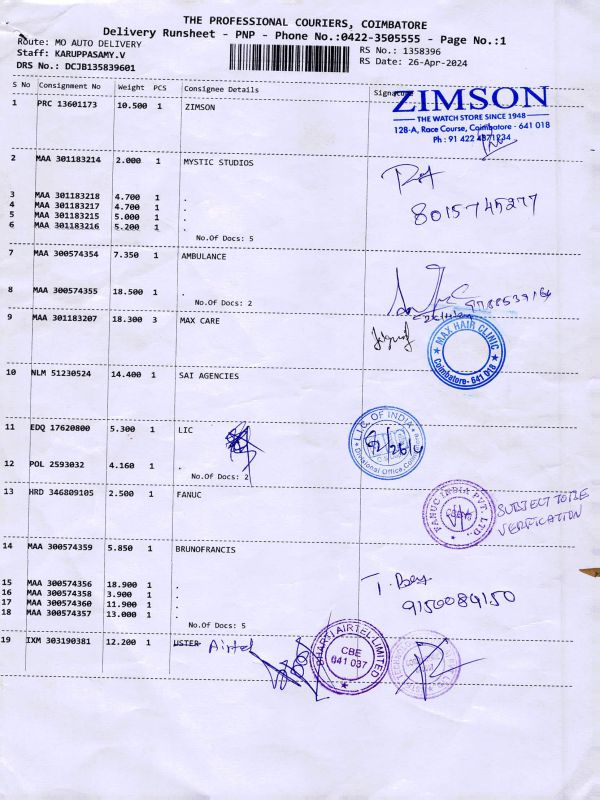 THE PROFESSIONAL COURIERS, COIMBATORE
Delivery Runsheet - PNP - Phone No.:0422-3505555 - Page No.:1
Route: MO AUTO DELIVERY
Staff: KARUPPASAMY.V RS No.: 1358396
DRS No.: DCJB135839601 RS Date: 26-Apr-2024
S No Consignment No Weight PCS Consignee Details Signature
1 PRC 13601173 10.500 1 ZIMSON
ZIMSON
THE WATCH STORE SINCE 1948
128-A, Race Course, Coimbatore - 641 018
Ph : 91 422
2 MAA 301183214 2.000 1 MYSTIC STUDIOS
3 MAA 301183218 4.700 1 .
4 MAA 301183217 4.700 1 .
8015745277
5 MAA 301183215 5.000 1 .
6 MAA 301183216 5.200 1 .
No.Of Docs: 5
7 MAA 300574354 7.350 1 AMBULANCE
8 MAA 300574355 18.500 1 .
No.Of Docs: 2
9 MAA 301183207 18.300 3 MAX CARE
MAX HAIR CLINIC
Coimbatore- 641 018
10 NLM 51230524 14.400 1 SAI AGENCIES
11 EDQ 17620800 5.300 1 LIC
L.I.C. OF INDIA
Divisional Office
12 POL 2593032 4.160 1 .
No.Of Docs: 2
13 HRD 346809105 2.500 1 FANUC
FANUC INDIA PVT. LTD.
SUBJECT TO RE
VERIFICATION
14 MAA 300574359 5.850 1 BRUNOFRANCIS
15 MAA 300574356 18.900 1 .
16 MAA 300574358 3.900 1 .
17 MAA 300574360 11.900 1 .
9150084150
18 MAA 300574357 13.000 1 .
No.Of Docs: 5
19 IXM 303190381 12.200 1 USTER Airtel
BHARTI AIRTEL LIMITED
CBE
641 037